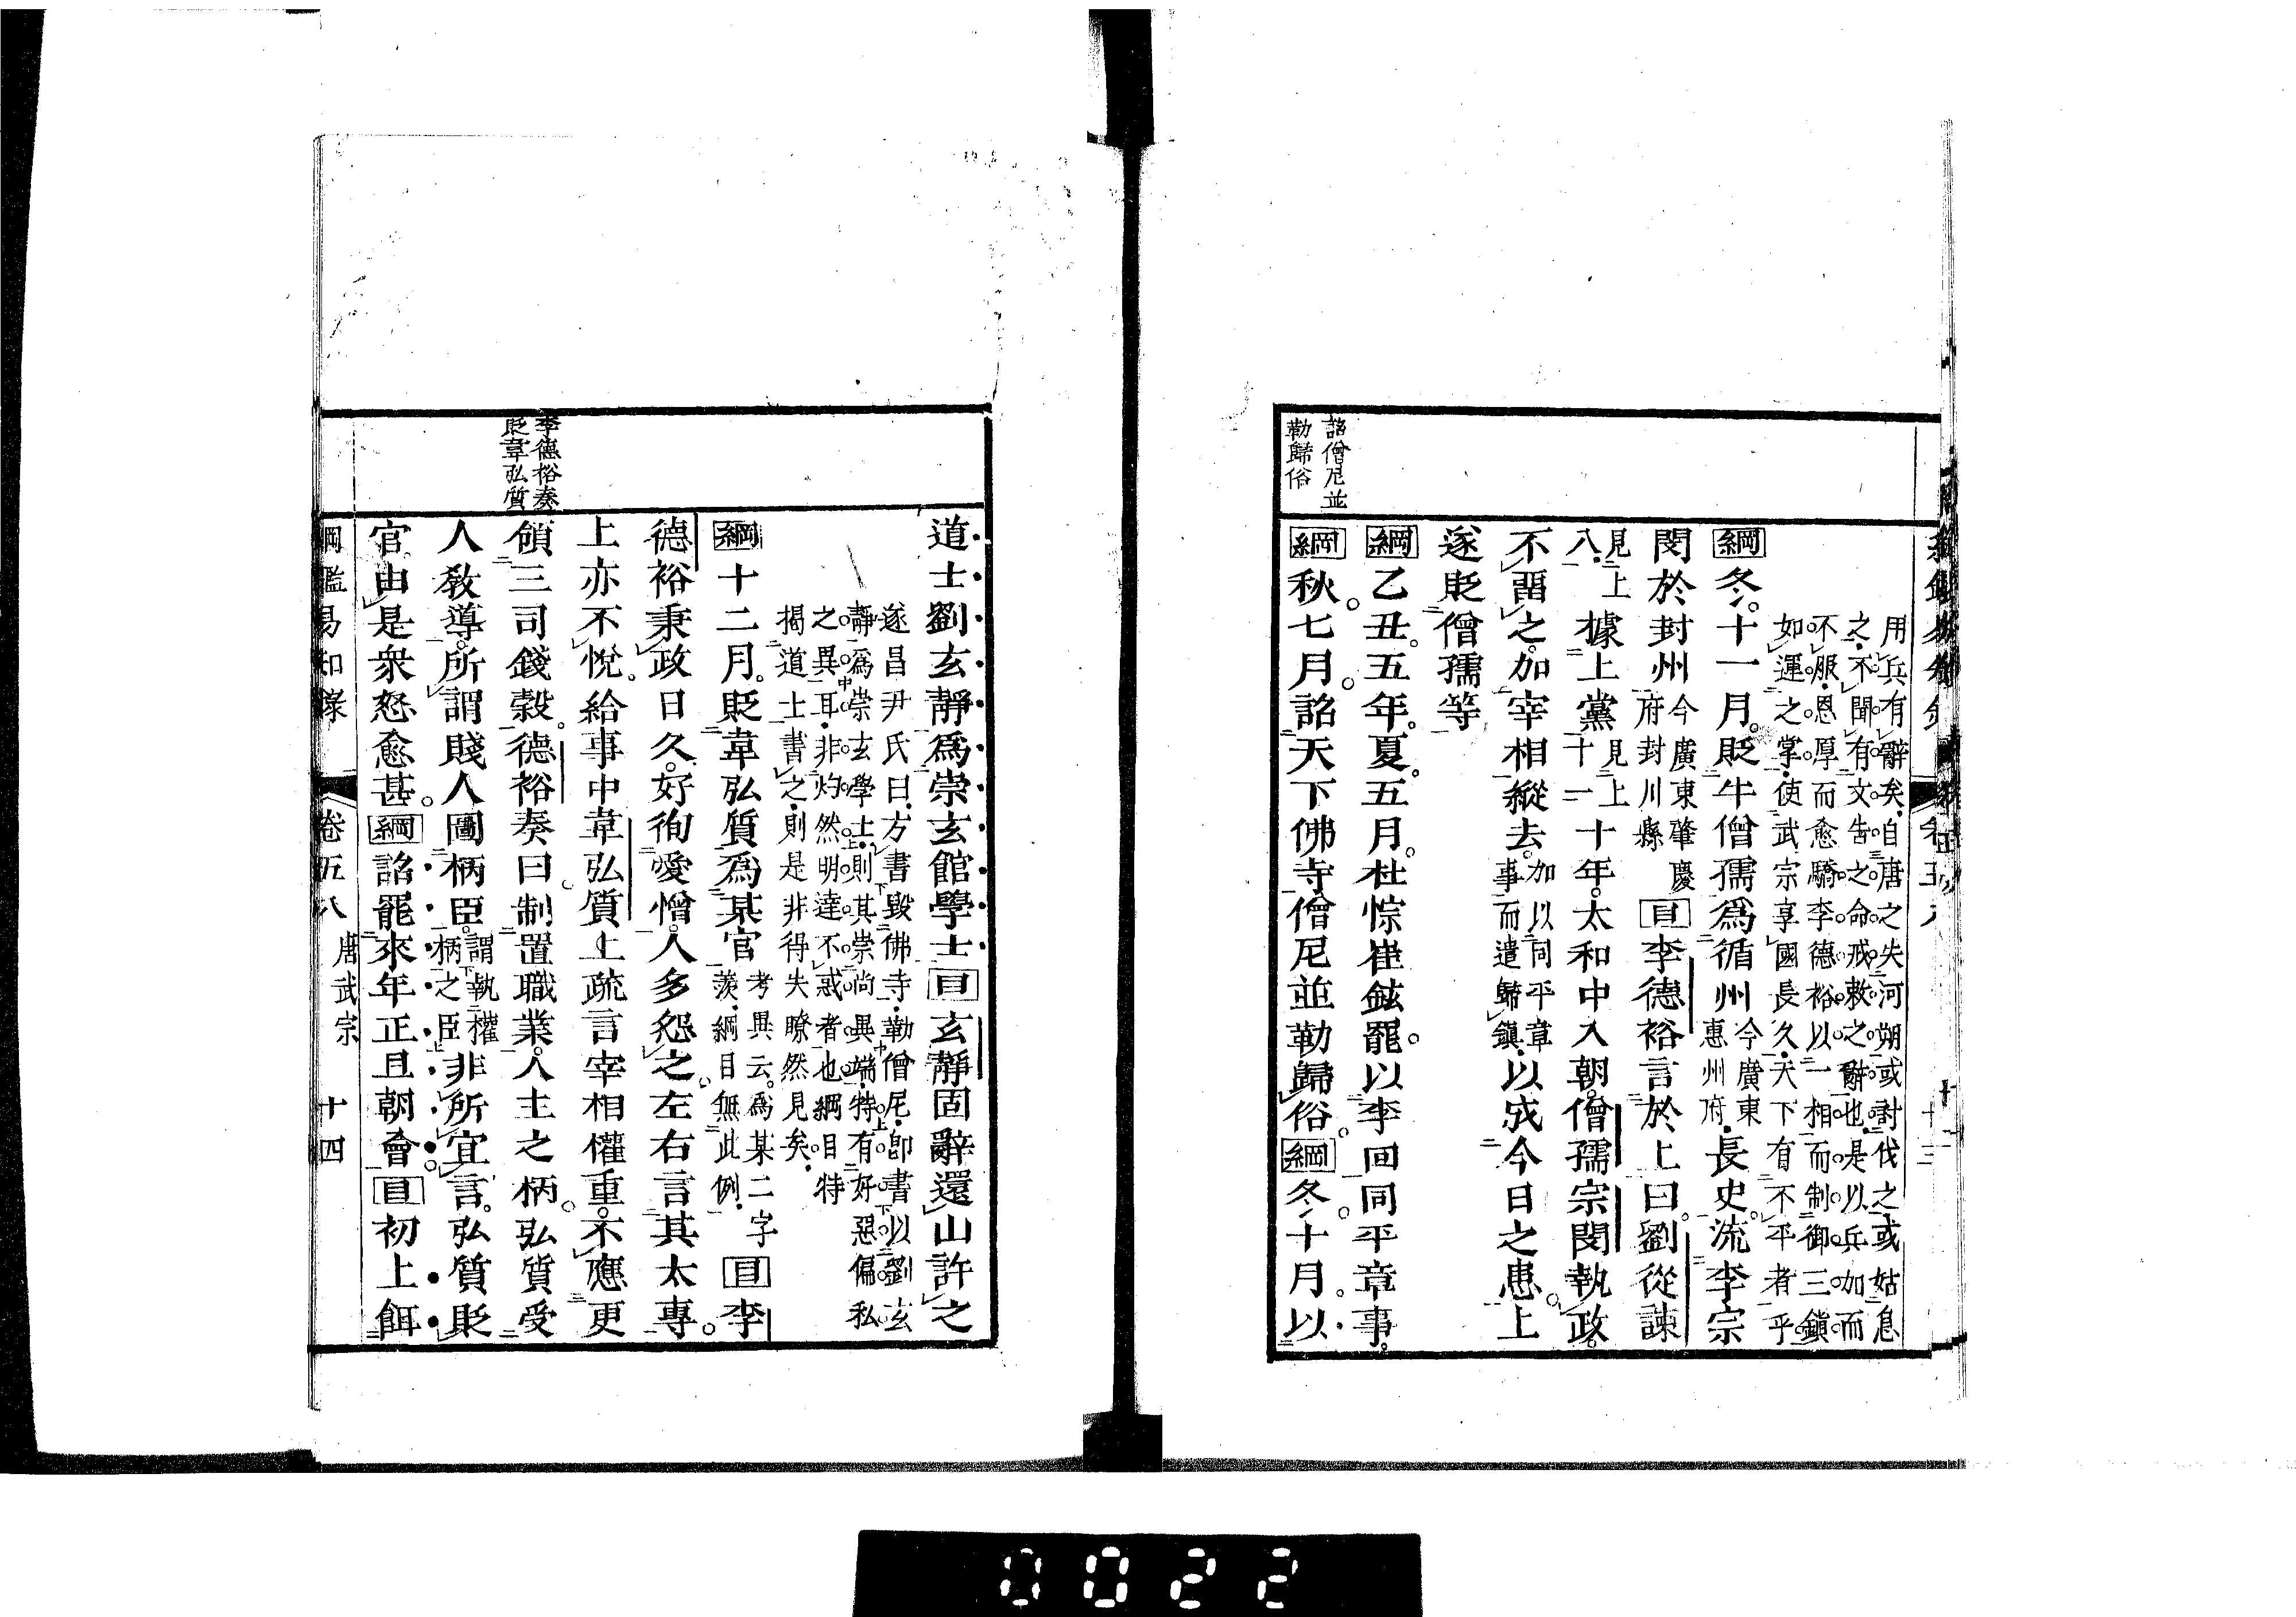 詔僧尼並
勒歸俗
用兵有辭矣自唐之失河朔或討伐之或姑息
之不聞有文告之命戒敕之辭也是以兵加而
不服恩厚而愈驕李德裕以一相而制御三鎮
如運之掌使武宗享國長久天下有不平者乎
綱冬十一月貶牛僧孺爲循州今廣東惠州府長史流李宗
閔於封州今廣東肇慶府封川縣目李德裕言於上曰劉從諫
八見上據上黨見上十一十年太和中入朝僧孺宗閔執政
不畱之加宰相縱去加以同平章事而遣歸鎮以成今日之患上
遂貶僧孺等
綱乙丑五年夏五月杜悰崔鉉罷以李回同平章事
綱秋七月詔天下佛寺僧尼並勒歸俗綱冬十月以
李德裕奏
貶韋弘質
道士劉玄靜爲崇玄館學士目玄靜固辭還山許之
遂昌尹氏曰方書毀佛寺勒僧尼卽書以劉玄
靜爲崇玄學士則其崇尚異端特有好惡偏私
之異耳非灼然明達不惑者也綱目特
揭道士書之則是非得失瞭然見矣
綱十二月貶韋弘質爲某官考異云爲某二字羨綱目無此例目李
德裕秉政日久好徇愛憎人多怨之左右言其太專
上亦不悅給事中韋弘質上疏言宰相權重不應更
領三司錢穀德裕奏曰制置職業人主之柄弘質受
人敎導所謂賤人圖柄臣謂執權柄之臣非所宜言弘質貶
官由是衆怒愈甚綱詔罷來年正旦朝會目初上餌
綱鑑易知錄 卷五八 唐武宗 十四